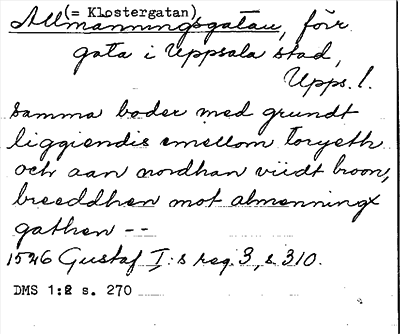 (= Klostergatan)
Allmanningsgatan, förr
gata i Uppsala stad,
Upps. l.
samma boder med grundt
liggiendis emellom Torgeth
och aan nordhan viidt broon,
breeddhen mot almenning
gathen --
1526 Gustaf I:s reg. 3, s. 310.
DMS 1:2 s. 270